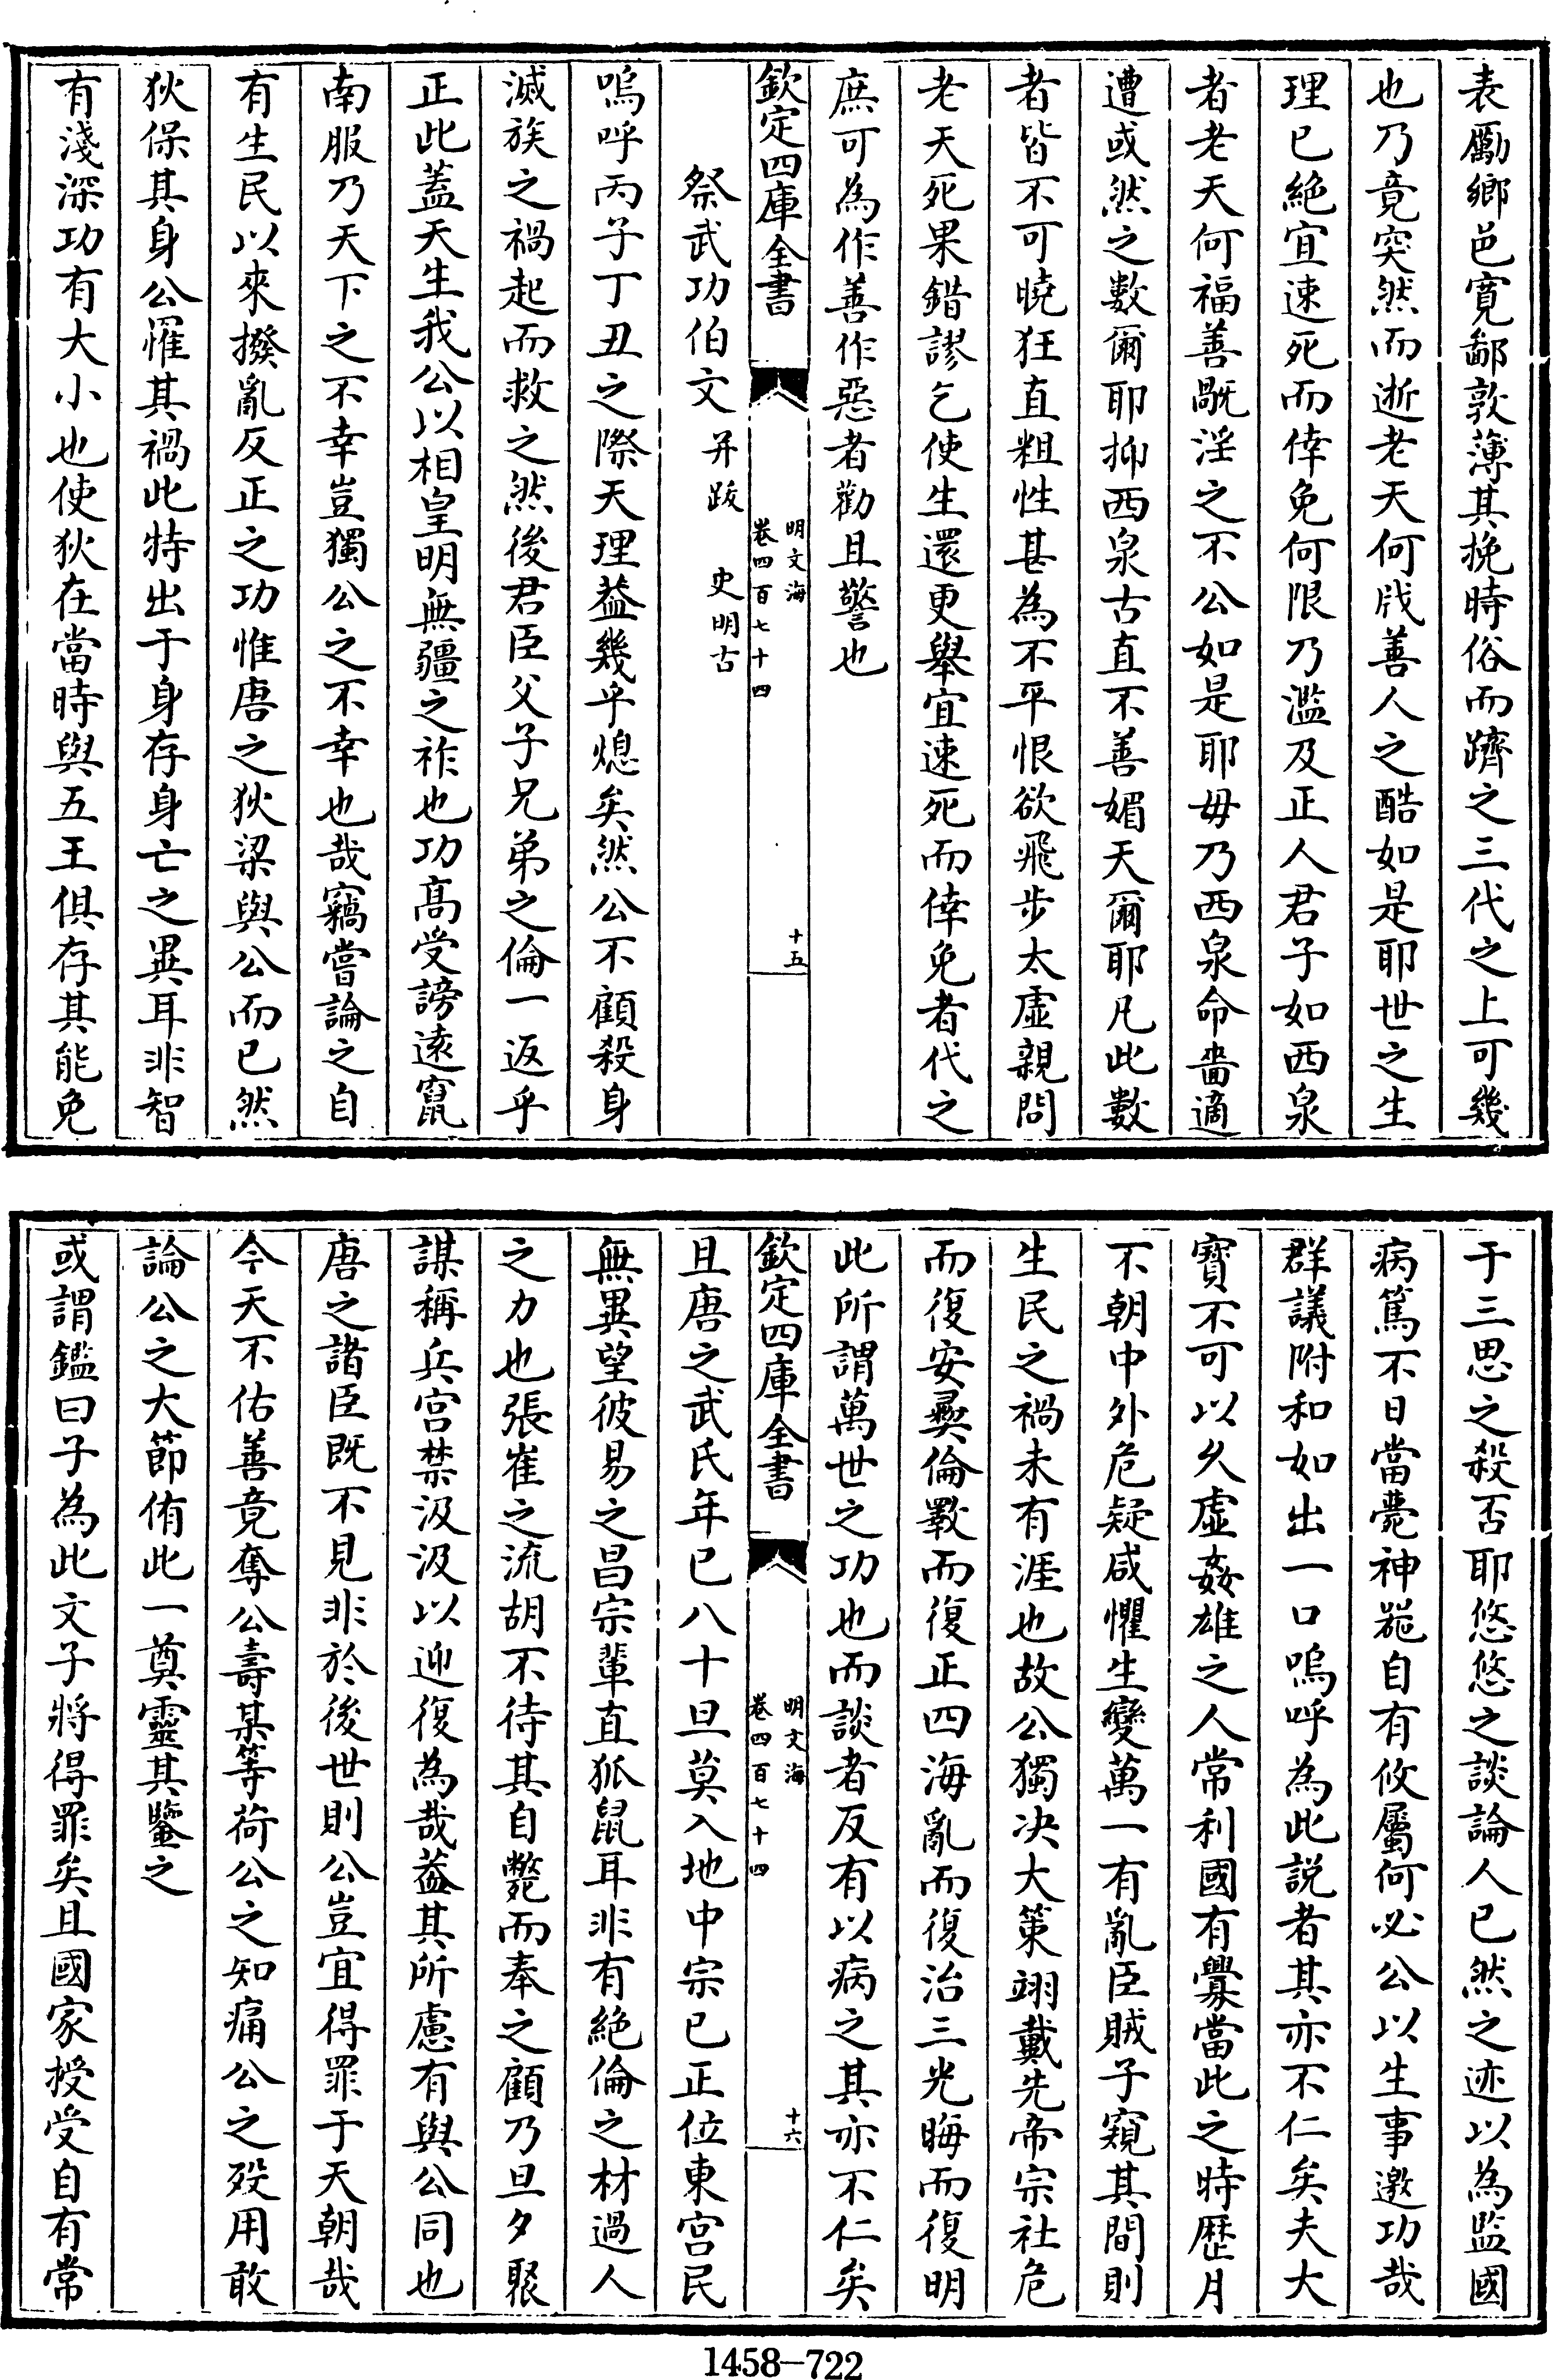 表勵鄉邑寛鄙敦薄其挽時俗而躋之三代之上可幾
也乃竟突然而逝老天何戕善人之酷如是耶世之生
理已絶宜速死而倖免何限乃濫及正人君子如西泉
者老天何福善殿淫之不公如是耶毋乃西泉命嗇適
遭或然之數爾耶抑西泉古直不善媚天爾耶凡此數
者皆不可曉狂直粗性甚為不平恨欲飛步太虚親問
老天死果錯謬乞使生還更舉宜速死而倖免者代之
庶可為作善作惡者勸且警也
欽定四庫全書
明文海
卷四百七十四
十五
祭武功伯文 并跋 史明古
嗚呼丙子丁丑之際天理葢幾乎熄矣然公不顧殺身
滅族之禍起而救之然後君臣父子兄弟之倫一返乎
正此蓋天生我公以相皇明無疆之祚也功髙受謗逺竄
南服乃天下之不幸豈獨公之不幸也哉竊嘗論之自
有生民以來撥亂反正之功惟唐之狄梁與公而已然
狄保其身公罹其禍此特出于身存身亡之異耳非智
有淺深功有大小也使狄在當時與五王俱存其能免
于三思之殺否耶悠悠之談論人已然之迹以為監國
病篤不日當薨神器自有攸屬何必公以生事邀功哉
群議附和如出一口嗚呼為此説者其亦不仁矣夫大
寳不可以乆虚姦雄之人常利國有釁當此之時歴月
不朝中外危疑咸懼生變萬一有亂臣賊子窺其間則
生民之禍未有涯也故公獨决大策翊戴先帝宗社危
而復安彛倫斁而復正四海亂而復治三光晦而復明
此所謂萬世之功也而談者反有以病之其亦不仁矣
欽定四庫全書
明文海
卷四百七十四
十六
且唐之武氏年已八十旦莫入地中宗已正位東宫民
無異望彼易之昌宗輩直狐鼠耳非有絶倫之材過人
之力也張崔之流胡不待其自斃而奉之顧乃旦夕聚
謀稱兵宫禁汲汲以迎復為哉葢其所慮有與公同也
唐之諸臣既不見非於後世則公豈宜得罪于天朝哉
今天不佑善竟奪公壽某等荷公之知痛公之殁用敢
論公之大節侑此一奠靈其鑒之
或謂鑑曰子為此文子將得罪矣且國家授受自有常
1458-722